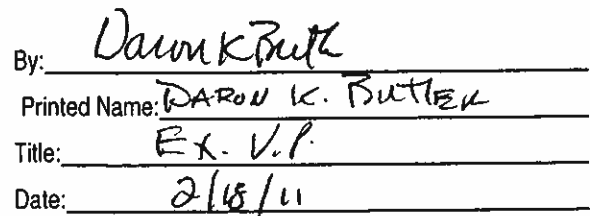 By: Daron K Butler
Printed Name: DARON K. BUTLER
Title: Ex. V.P.
Date: 2/18/11